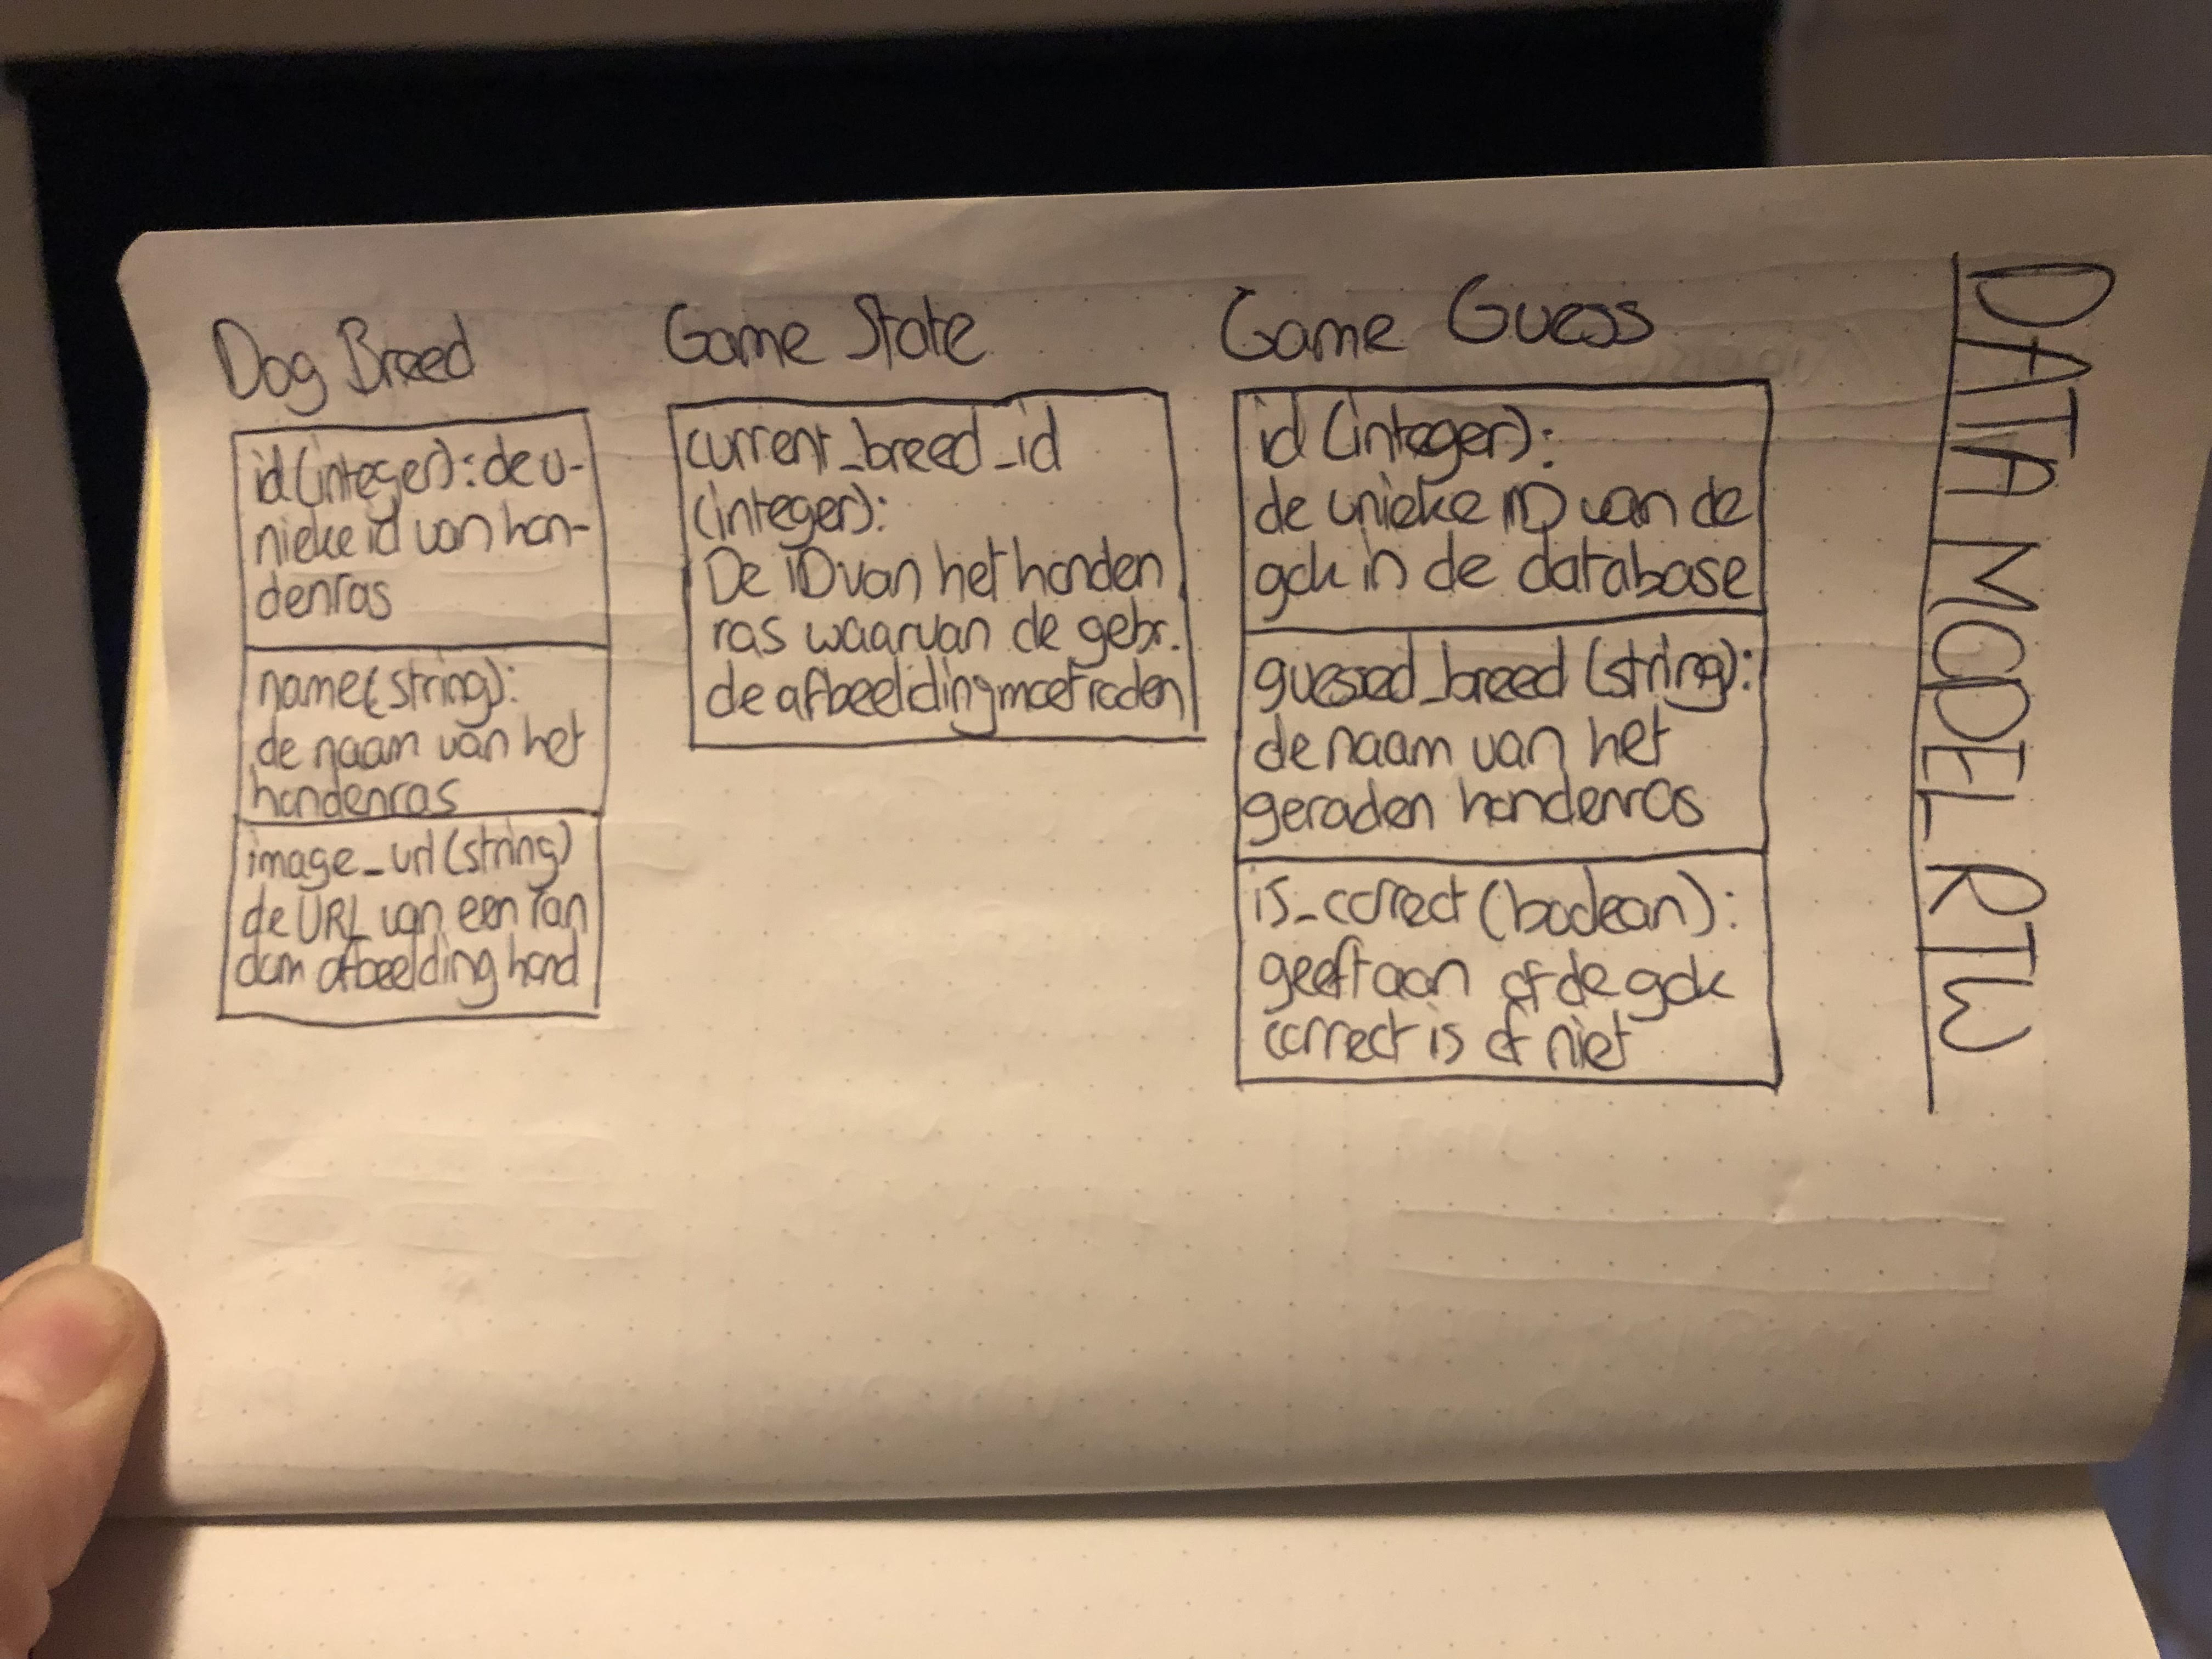 DATA MODEL RTW
Dog Breed
id (integer): de u-
nieke id van hon-
denras
name (string):
de naam van het
hondenras
image_url (string)
de URL van een ran
dom afbeelding hond
Game State
current_breed_id
(integer):
De ID van het honden
ras waarvan de gebr.
de afbeelding moet raden
Game Guess
id (integer):
de unieke ID van de
gok in de database
guessed_breed (string):
de naam van het
geraden hondenras
is_correct (boolean):
geeft aan of de gok
correct is of niet